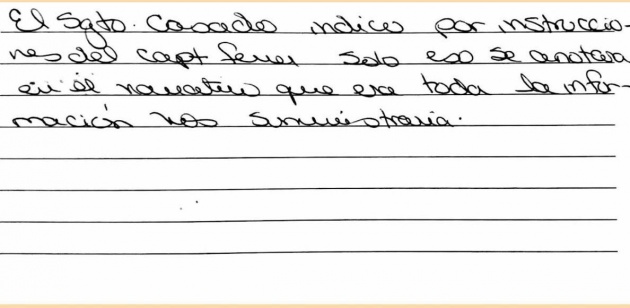 El Sgto. Casado indico por instruccio-
nes del capt Ferrer solo eso se anotara
en el narrativo que era toda la infor-
mación nos suministraria.